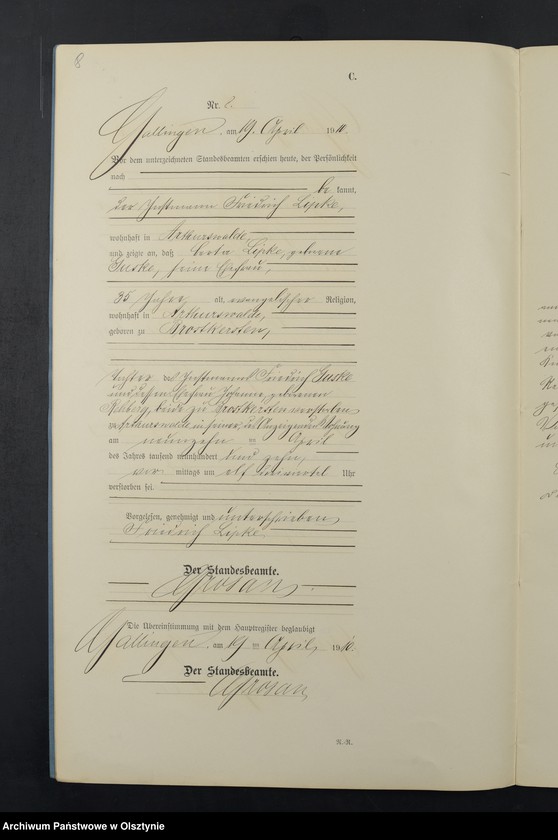 8
C.
Nr. 2.
Gallingen, am 19. April 1910.
Vor dem unterzeichneten Standesbeamten erschien heute, der Persönlichkeit
nach
be kannt,
der Instmann Friedrich Lipke,
wohnhaft in Arthurswalde,
und zeigte an, daß Lipke, geborene
Guske, seine Ehefrau,
35 Jahre alt, evangelischer Religion,
wohnhaft in Arthurswalde,
geboren zu
Tochter des Instmanns Friedrich Guske
und dessen Ehefrau Johanne, geborenen
beide zu verstorben
zu Arthurswalde, in seiner, des Anzeigenden Wohnung
am neunzehn ten April
des Jahres tausend neunhundert und zehn,
vor mittags um elf einviertel Uhr
verstorben sei.
Vorgelesen, genehmigt und unterschrieben
Friedrich Lipke.
Der Standesbeamte.
Die Übereinstimmung mit dem Hauptregister beglaubigt
Gallingen, am 19 ten April 1910.
Der Standesbeamte.
Archiwum Państwowe w Olsztynie